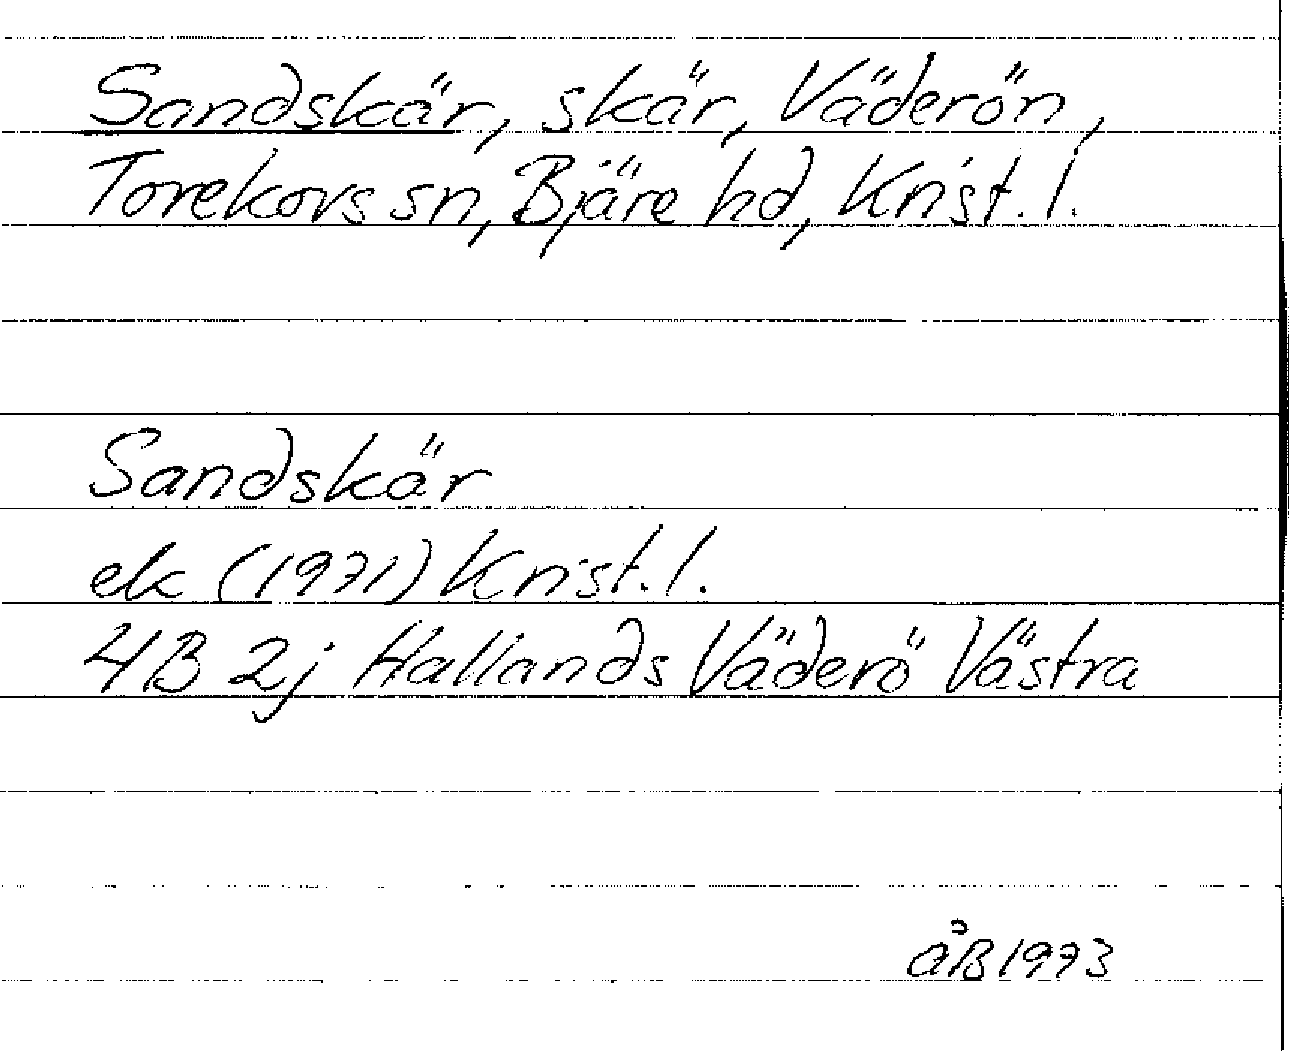 Sandskär, skär, Väderön,
Torekovs sn, Bjäre hd, Krist. l.
Sandskär
ek (1971) Krist. l.
4B 2j Hallands Väderö Västra
åB 1973